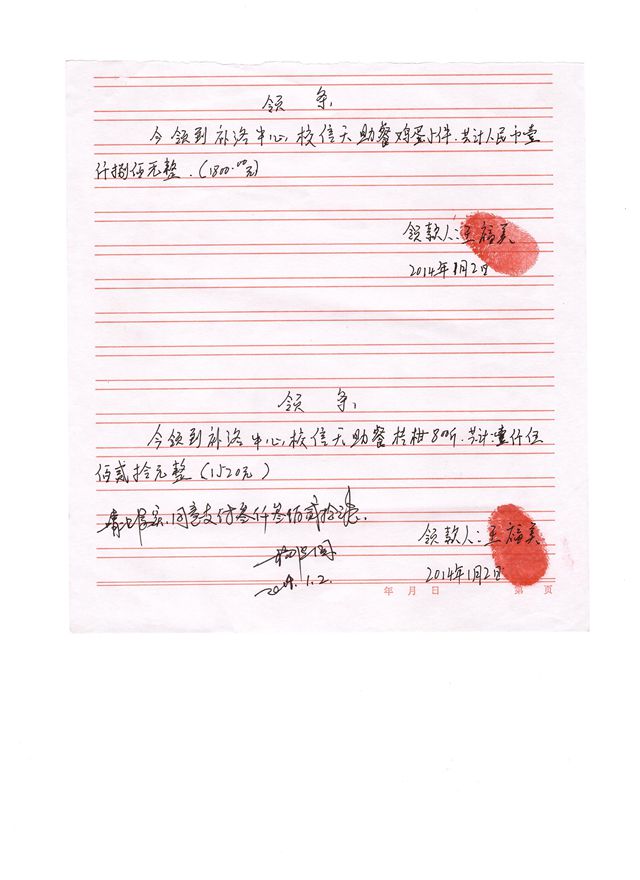 领 条
今领到补洛中心校信天助餐鸡蛋5件.共计人民币壹
仟捌佰元整.(1800.00元)
领款人:王福美
2014年1月2日
领 条
今领到补洛中心校信天助餐桔柑80斤.共计:壹仟伍
佰贰拾元整(1520元)
同意支付叁仟叁佰贰拾元.
领款人:王福美
2014.1.2.
2014年1月2日
年 月 日 第 页